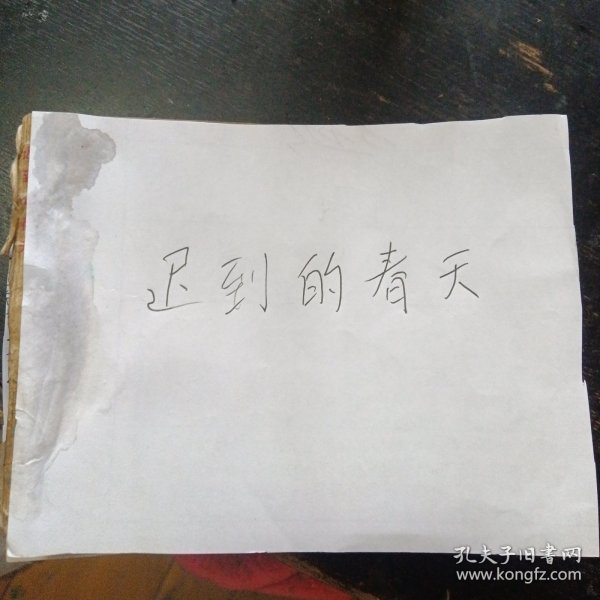 迟到的春天
孔夫子旧書网
www.kongfz.com